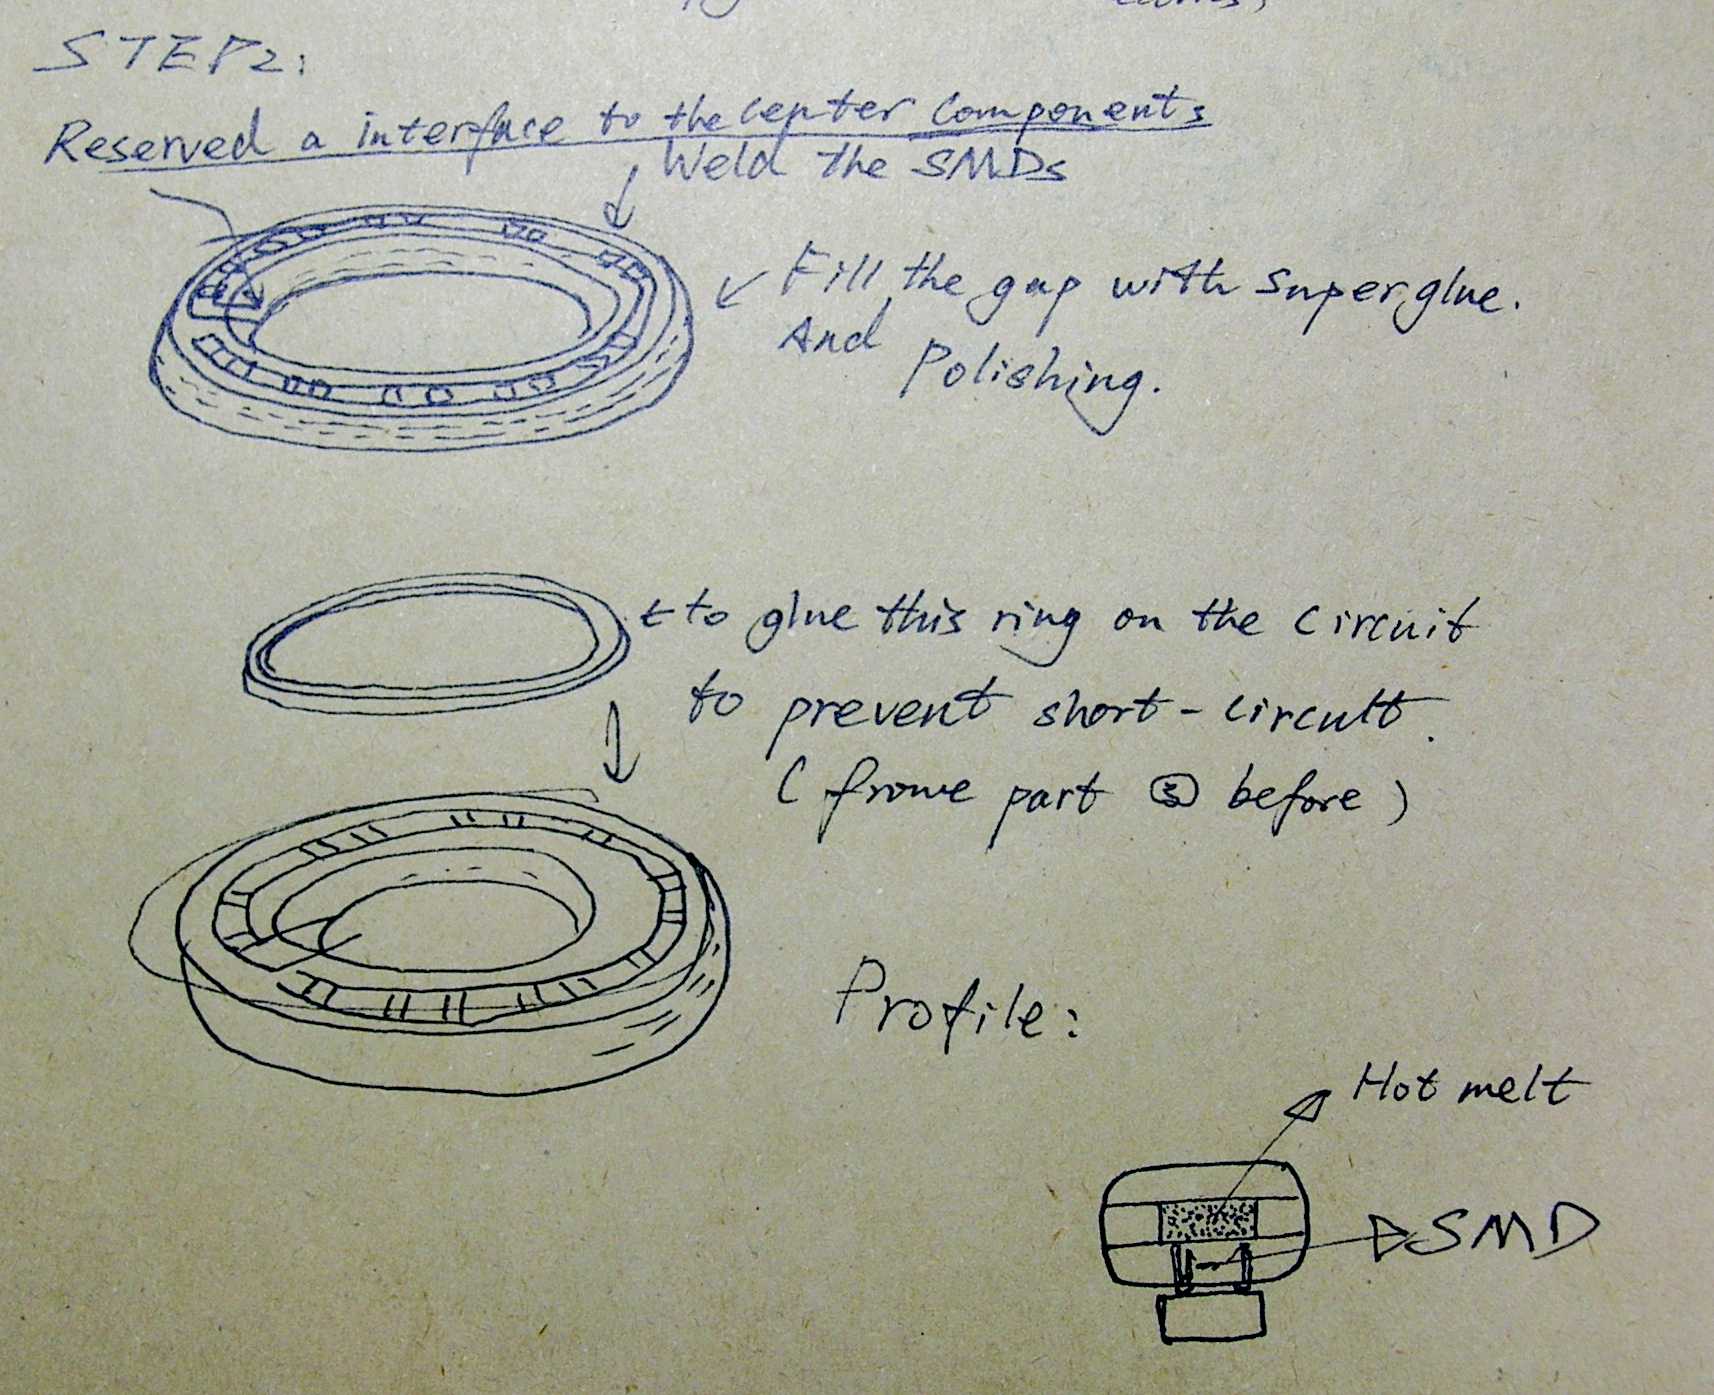 STEP2:
Reserved a interface to the center components
Weld the SMDs
Fill the gap with superglue.
And
Polishing.
to glue this ring on the circuit
to prevent short-circuit.
(frome part ③ before)
Profile:
Hot melt
SMD